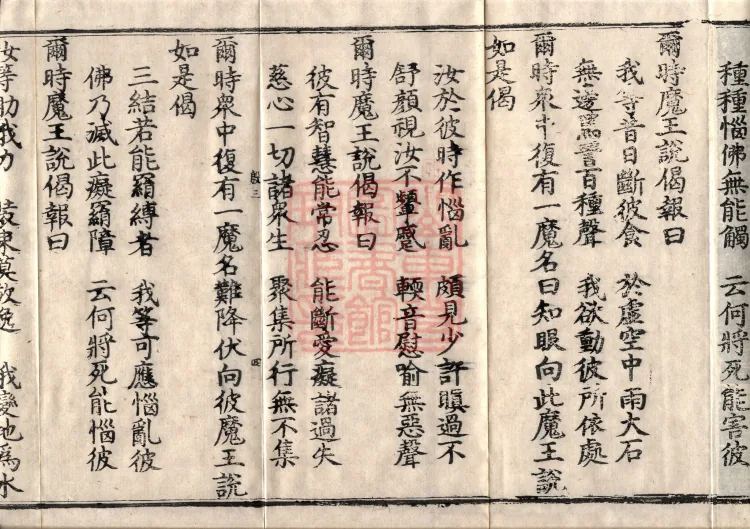 種種惱佛無能觸　云何將死能害彼
爾時魔王說偈報曰
我等昔日斷彼食　於虛空中雨大石
無邊罵詈百種聲　我欲動彼所依處
爾時衆中復有一魔名曰知眼向此魔王說
如是偈
汝於彼時作惱亂　頗見少許瞋過不
舒顏視汝不顰蹙　輭音慰喻無惡聲
爾時魔王說偈報曰
彼有智慧能常忍　能斷愛癡諸過失
慈心一切諸衆生　聚集所行無不集
殷三　四
爾時衆中復有一魔名難降伏向彼魔王說
如是偈
三結若能羂縛者　我等可應惱亂彼
佛乃滅此癡羂障　云何將死能惱彼
爾時魔王說偈報曰
汝等助我力　莫放逸　我變地爲水